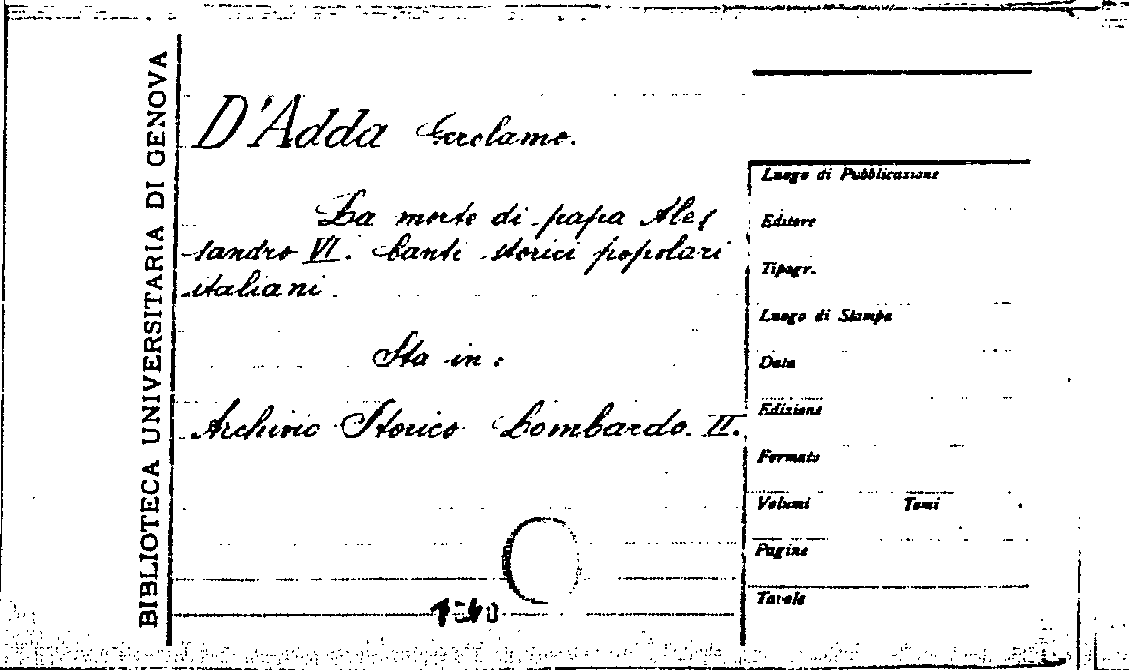 BIBLIOTECA UNIVERSITARIA DI GENOVA
D'Adda Gerolamo.
La morte di papa Ales
sandro VI. Canti storici popolari
italiani.
Sta in:
Archivio Storico Lombardo. II.
Luogo di Pubblicazione
Editore
Tipogr.
Luogo di Stampa
Data
Edizione
Formato
Volumi Tomi
Pagine
Tavole